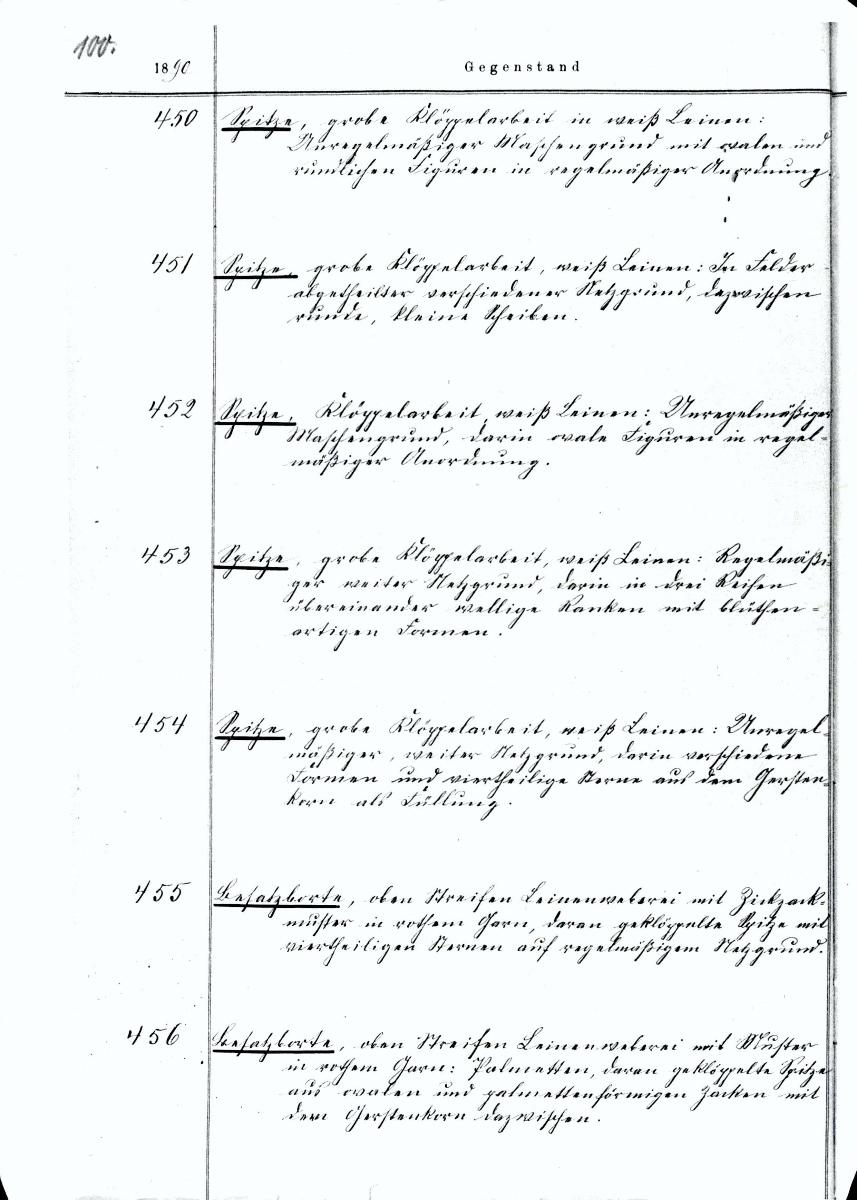 100.
1890 Gegenstand
450 Spitze, grobe Klöppelarbeit in weiß Leinen:
Unregelmäßiger Maschengrund mit ovalen und
rundlichen Figuren in regelmäßiger Anordnung.
451 Spitze, grobe Klöppelarbeit, weiß Leinen: In Felder
abgetheilter verschiedener Netzgrund, dazwischen
runde, kleine Scheiben.
452 Spitze, Klöppelarbeit, weiß Leinen: Unregelmäßiger
Maschengrund, darin ovale Figuren in regel-
mäßiger Anordnung.
453 Spitze, grobe Klöppelarbeit, weiß Leinen: Regelmäßi-
ger weiter Netzgrund, darin in drei Reihen
übereinander wellige Ranken mit blüthen-
artigen Formen.
454 Spitze, grobe Klöppelarbeit, weiß Leinen: Unregel-
mäßiger, weiter Netzgrund, darin verschiedene
Formen und viertheilige Sterne aus dem Gersten-
korn als Füllung.
455 Besatzborte, oben Streifen Leinenweberei mit Zickzack-
muster in rothem Garn, daran geklöppelte Spitze mit
viertheiligen Sternen auf regelmäßigem Netzgrund.
456 Besatzborte, oben Streifen Leinenweberei mit Muster
in rothem Garn: Palmetten, daran geklöppelte Spitze
aus ovalen und palmettenförmigen Zacken mit
dem Gerstenkorn dazwischen.